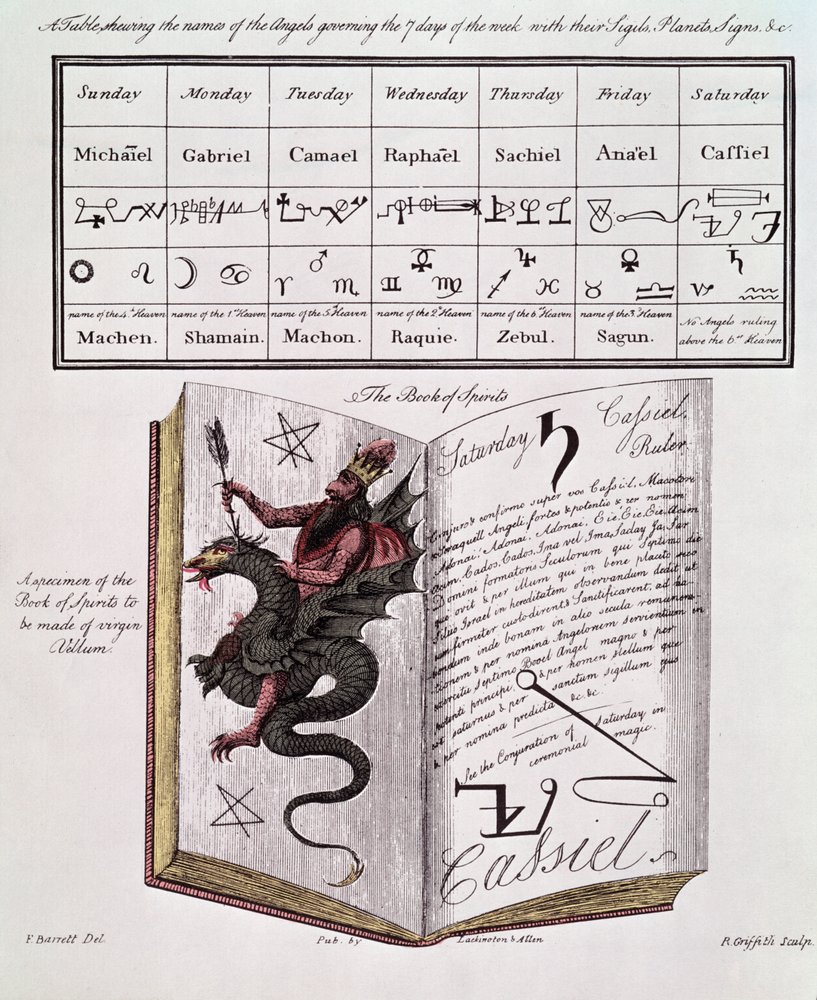 A Table shewing the names of the Angels governing the 7 days of the week with their Sigils, Planets, Signs, &c.
Sunday Monday Tuesday Wednesday Thursday Friday Saturday
Michaïel Gabriel Camael Raphaël Sachiel Ana"el Caſſiel
♌ ☽ ♋ ♂ ♈ ♏ ☿ ♊ ♍ ♃ ♐ ♓ ♀ ♉ ♎ ♄ ♑ ♒
name of the 4th Heaven name of the 1st Heaven name of the 5th Heaven name of the 2d Heaven name of the 6th Heaven name of the 3d Heaven No Angels ruling
Machen. Shamain. Machon. Raquie. Zebul. Sagun. above the 6th Heaven
The Book of Spirits
Saturday ♄ Caſsiel,
Ruler
Conjuro & confirmo super vos Caſsiel, Macatori
Seraquiel Angeli fortes & potentio & per nomen
Adonai, Adonai, Adonai, Eie, Eie, Eie,
Acim, Cados, Cados, Ima vel Ima, Saday, Ja, Sar
Domini formatoris Seculorum qui Septimo die
quo ovit & per illum qui in bene placito suo
filiis Israel in hereditatem observandum dedit ut
firmiter custodirent, & Sanctificarent, ad
inde bonam in alio secula
& per nomina Angelorum servientium in
exercitu septimo Booel Angel magno & per
potenti principi & per homen stellum que
est saturnus & per sanctum sigillum ejus
& per nomina predicta &c. &c.
See the Conjuration of Saturday in
ceremonial magic.
Caſsiel.
A specimen of the
Book of Spirits to
be made of virgin
Vellum.
F. Barrett Del. Pub. by Lackington & Allen R. Griffith Sculp.